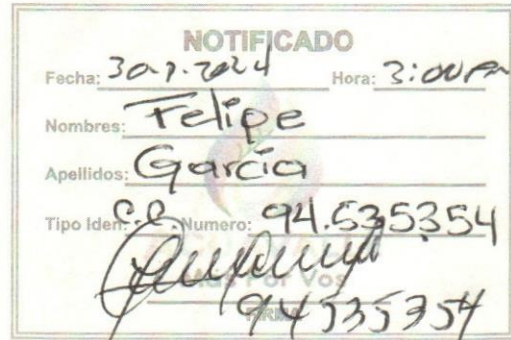 NOTIFICADO
Fecha: 30-7-2024 Hora: 3:00 PM
Nombres: Felipe
Apellidos: García
Tipo Iden: C.C. Numero: 94.535354
Más Por Vos
94535354
FIRMA